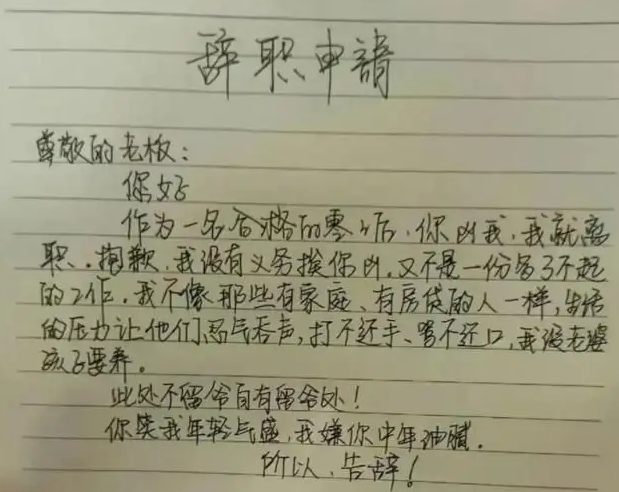 辞职申請
尊敬的老板：
你好
作为一名合格的零零后，你凶我，我就离
职。抱歉，我没有义务挨你凶，又不是一份多了不起
的工作。我不像那些有家庭、有房贷的人一样，生活
的压力让他们忍气吞声，打不还手、骂不还口，我没老婆
孩子要养。
此处不留爷自有留爷处！
你笑我年轻气盛，我嫌你中年油腻。
所以、告辞！